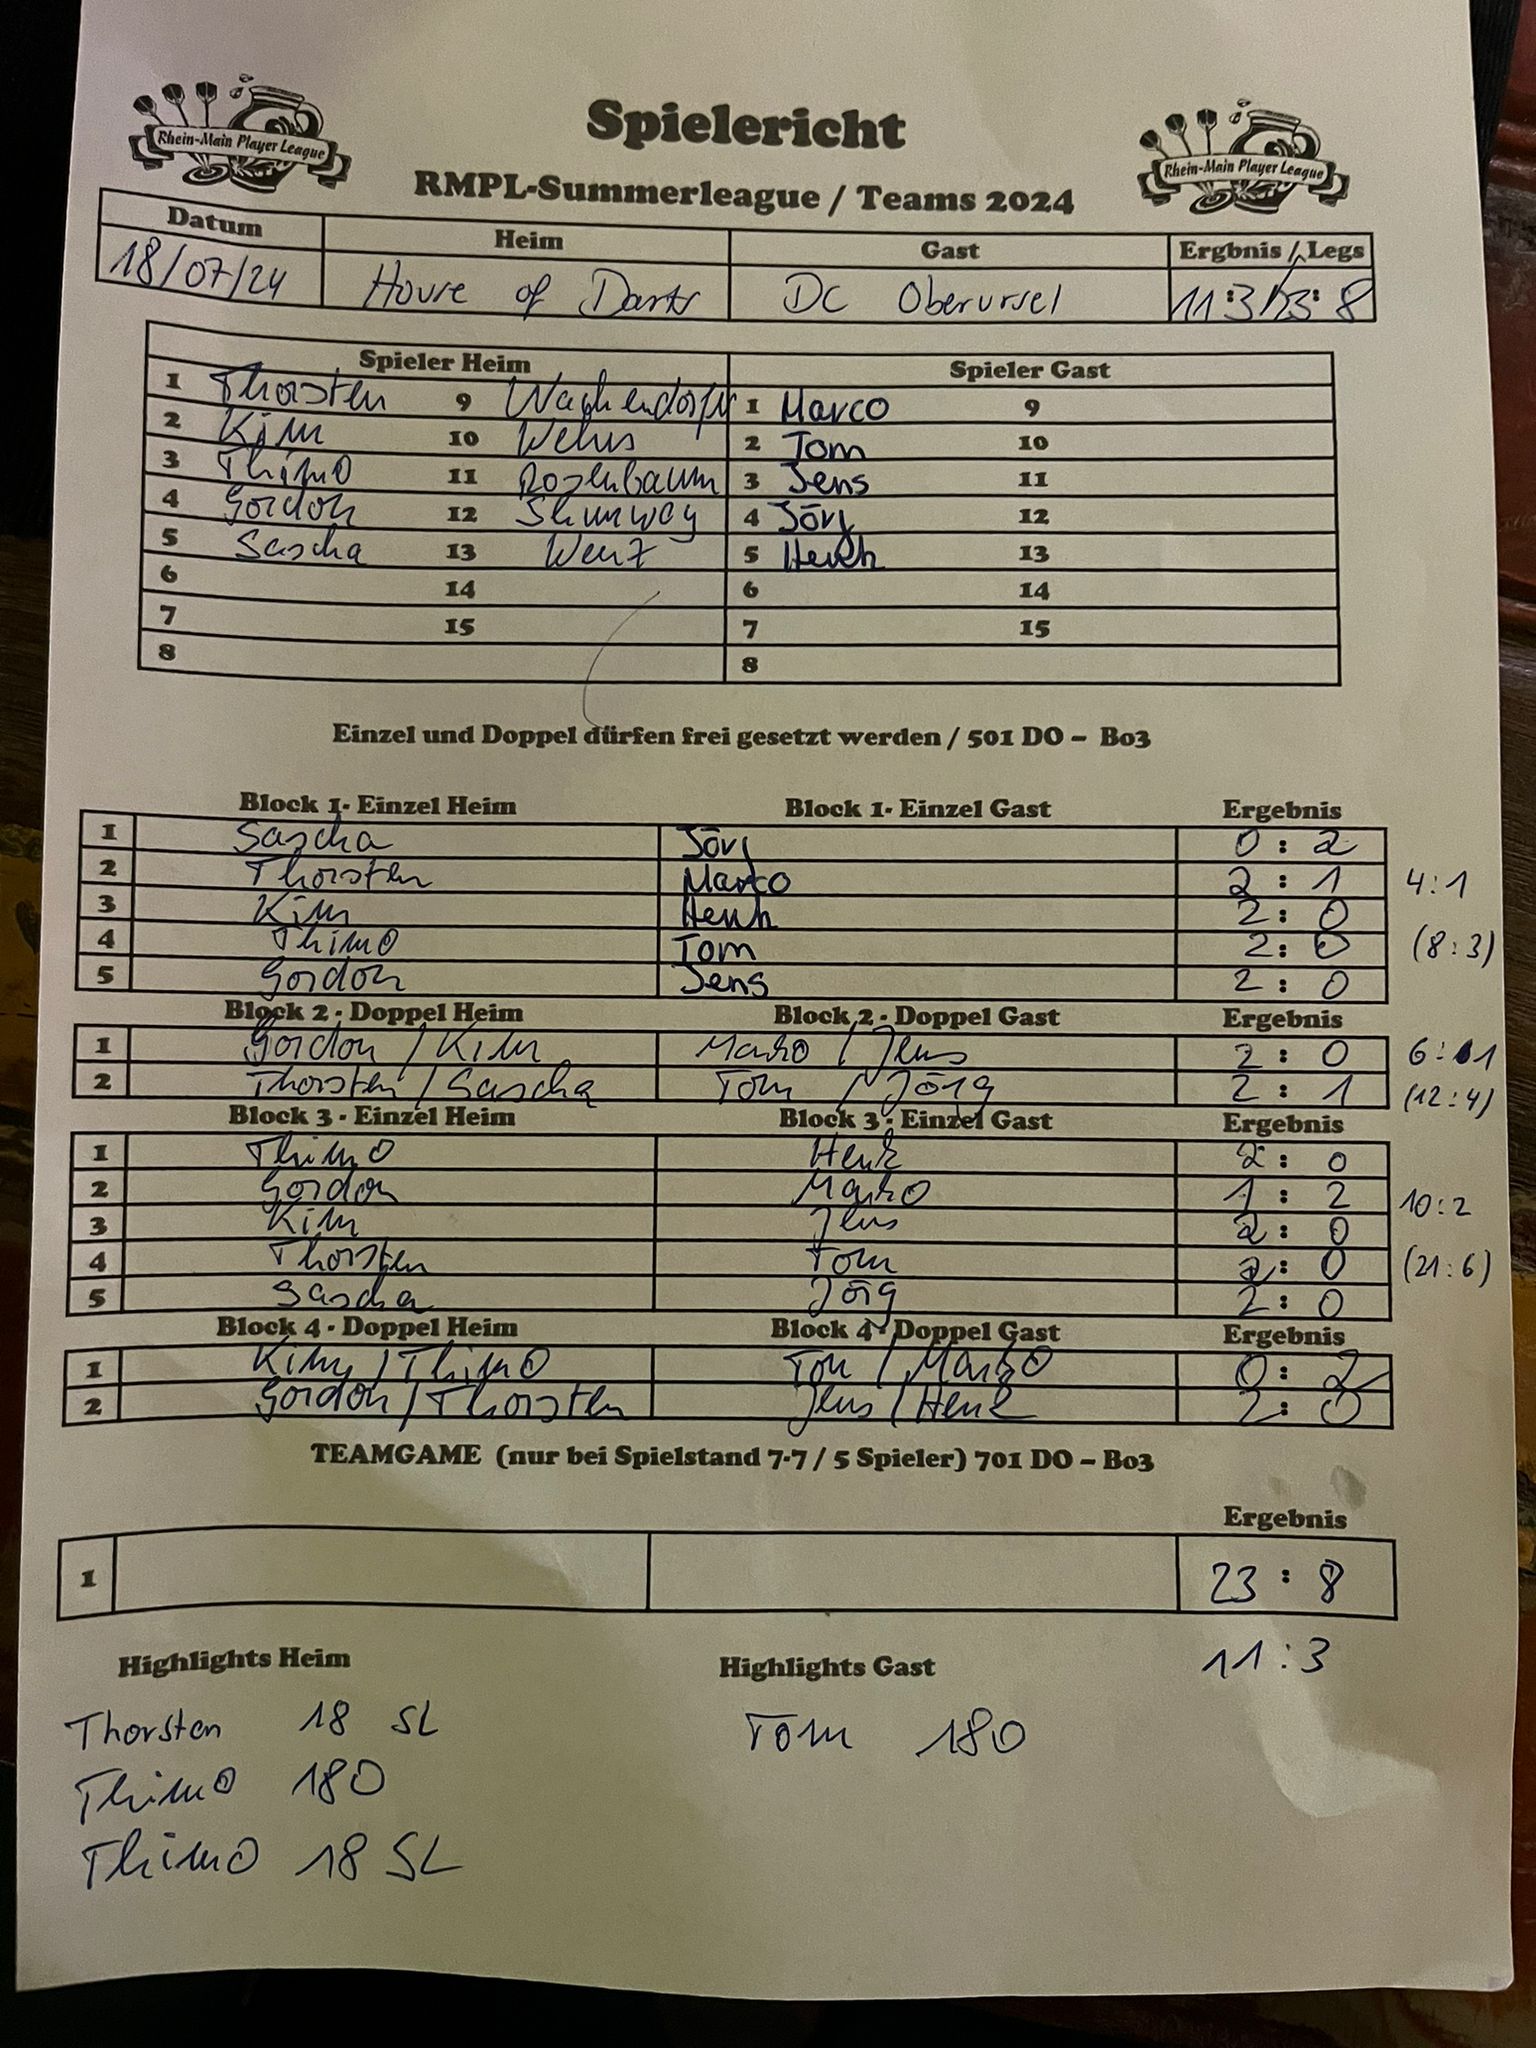 Rhein-Main Player League
Spielericht
Rhein-Main Player League
RMPL-Summerleague / Teams 2024
Datum Heim Gast Ergbnis / Legs
18/07/24 House of Darts DC Oberursel 11:3 / 23:8
Spieler Heim Spieler Gast
1 Thorsten 9 1 Marco 9
2 Kim 10 Wehrs 2 Tom 10
3 Thimo 11 Rosenbaum 3 Jens 11
4 Gordon 12 Shumway 4 Jörg 12
5 Sascha 13 Wenz 5 Henk 13
6 14 6 14
7 15 7 15
8 8
Einzel und Doppel dürfen frei gesetzt werden / 501 DO – Bo3
Block 1- Einzel Heim Block 1- Einzel Gast Ergebnis
1 Sascha Jörg 0 : 2
2 Thorsten Marco 2 : 1 4:1
3 Kim Henk 2 : 0
4 Thimo Tom 2 : 0 (8:3)
5 Gordon Jens 2 : 0
Block 2 - Doppel Heim Block 2 - Doppel Gast Ergebnis
1 Gordon / Kim Marko / Jens 2 : 0 6:1
2 Thorsten / Sascha Tom / Jörg 2 : 1 (12:4)
Block 3 - Einzel Heim Block 3 - Einzel Gast Ergebnis
1 Thimo Henk 2 : 0
2 Gordon Marko 1 : 2 10:2
3 Kim Jens 2 : 0
4 Thorsten Tom 2 : 0 (21:6)
5 Sascha Jörg 2 : 0
Block 4 - Doppel Heim Block 4 - Doppel Gast Ergebnis
1 Kim / Thimo Tom / Marko 0 : 2
2 Gordon / Thorsten Jens / Henk 2 : 0
TEAMGAME (nur bei Spielstand 7-7 / 5 Spieler) 701 DO – Bo3
Ergebnis
1 23 : 8
11:3
Highlights Heim Highlights Gast
Thorsten 18 SL Tom 180
Thimo 180
Thimo 18 SL